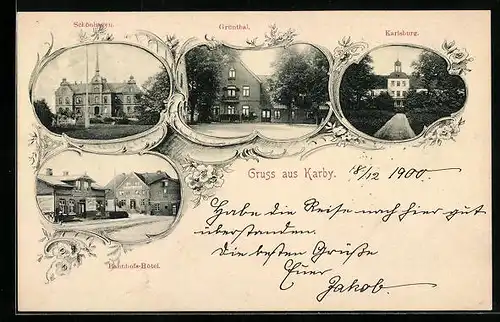 Schönhagen.
Grünthal.
Karlsburg.
Bahnhofs-Hôtel.
Gruss aus Karby. 18/12 1900.
Habe die Reise nach hier gut
überstanden.
Die besten Grüße
Euer
Jakob.